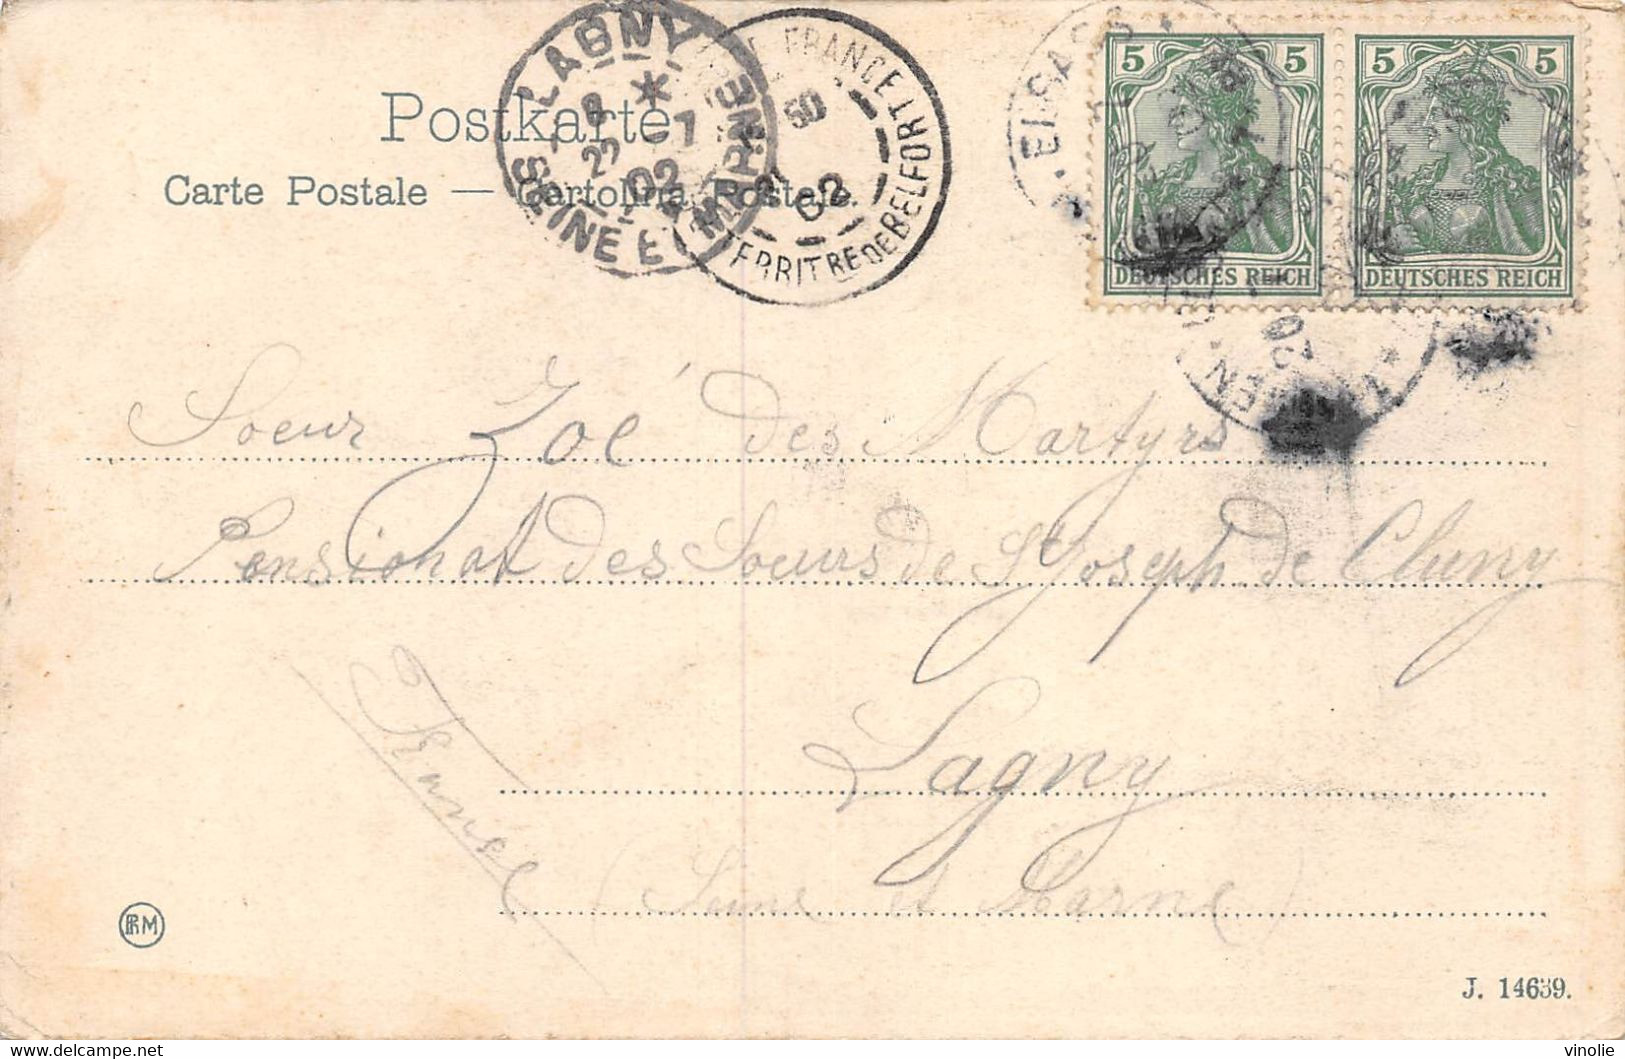 LAGNY
SEINE ET MARNE
02
FRANCE
BELFORT
TERRIT RE DE BELFORT
50
02
ELSASS
5 5
DEUTSCHES REICH
5 5
DEUTSCHES REICH
Postkarte
Carte Postale — Cartolina Postale.
Soeur Zoé des Martyrs
Pensionat des Soeurs de St Joseph de Cluny
Lagny
France
(Seine et Marne)
RM
J. 14639.
delcampe.net
vinolie